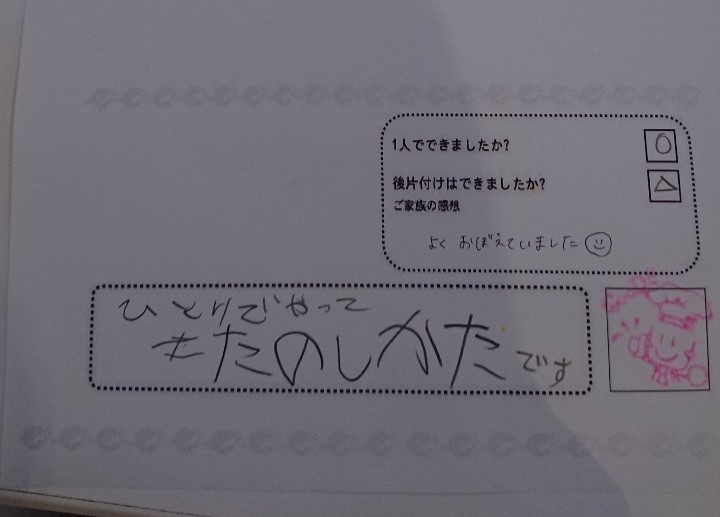 1人でできましたか?
○
後片付けはできましたか?
△
ご家族の感想
よく おぼえていました
ひとりでやって
きたのしかた
です